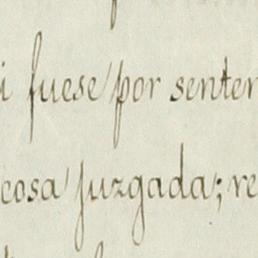 i fuese por senten
cosa juzgada; re